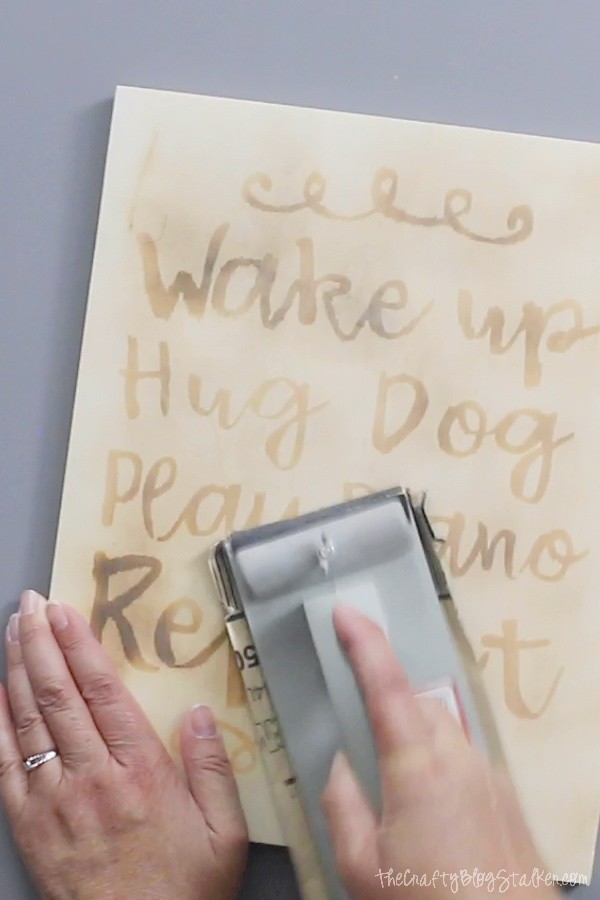 Wake up
Hug Dog
Play Piano
Repeat
TheCraftyBlogStalker.com